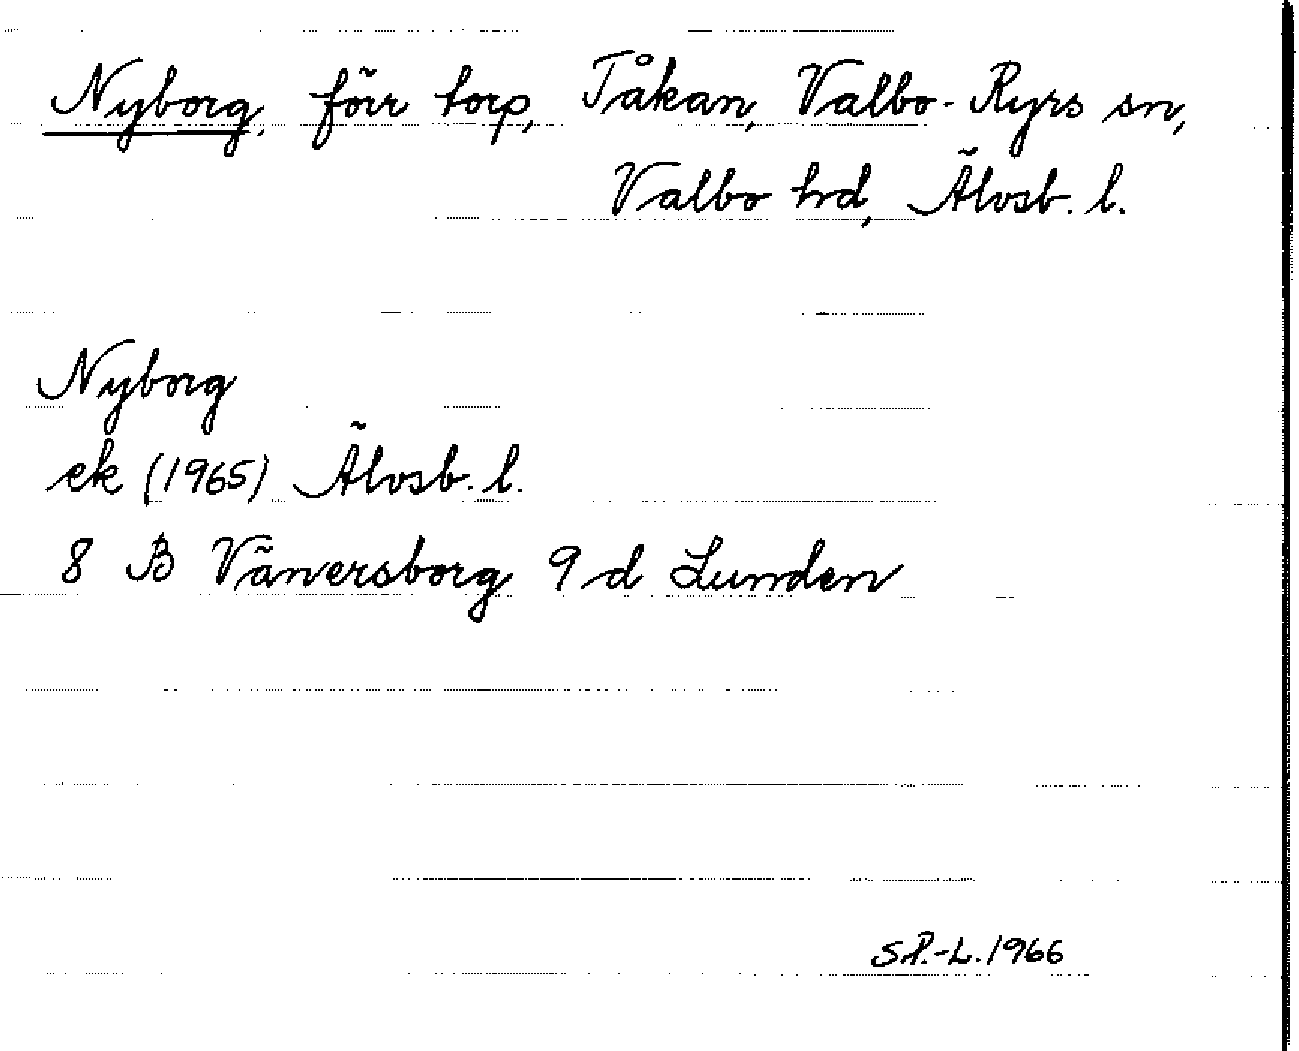 Nyborg, förr torp, Tåkan, Valbo-Ryrs sn,
Valbo hd, Älvsb. l.
Nyborg
ek (1965) Älvsb. l.
8 B Vänersborg 9 d Lunden
S.P.-L. 1966